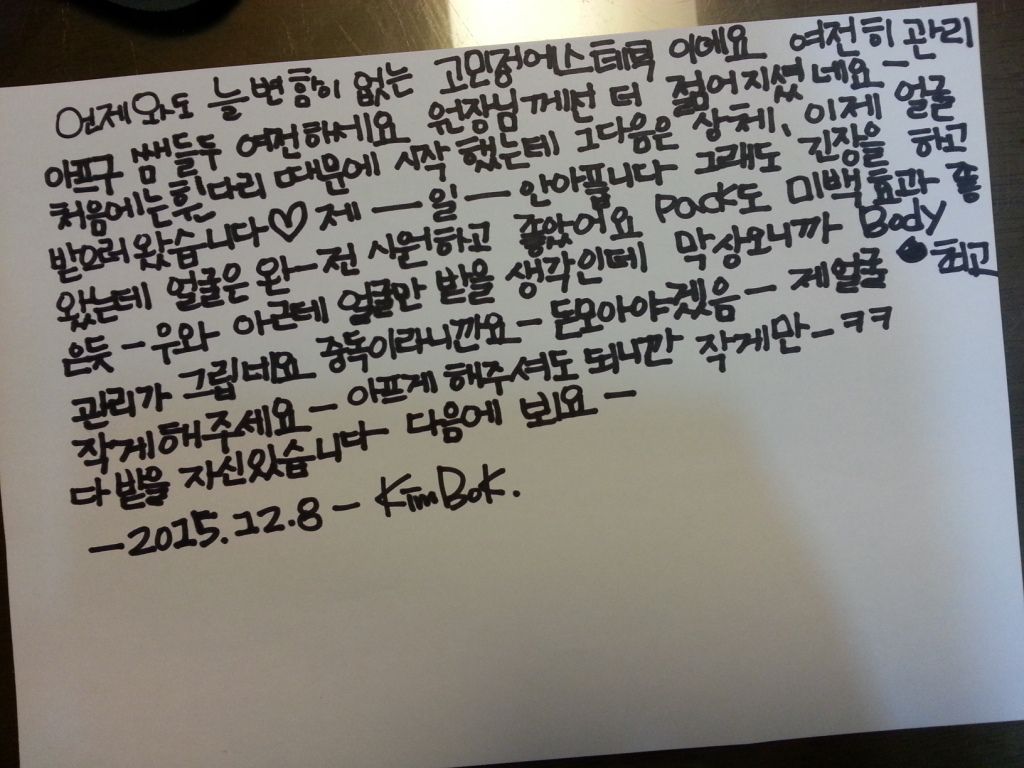 언제와도 늘 변함이 없는 고민정에스테틱 이예요 여전히 관리
아프구 쌤들두 여전하세요 원장님께선 더 젊어지셨네요-
처음에는 휜다리 때문에 시작했는데 그다음은 상체, 이제 얼굴
받으러 왔습니다♡ 제 — 일 — 안아픕니다 그래도 긴장을 하고
왔는데 얼굴은 완-전 시원하고 좋았어요 pack도 미백효과 좋
은듯 - 우와 아근데 얼굴만 받을 생각인데 막상오니까 Body
관리가 그립네요 중독이라니까요 - 돈모아야겠음 - 제얼굴 최고
작게해주세요 - 아프게 해주셔도 되니깐 작게만 - ㅋㅋ
다 받을 자신있습니다- 다음에 뵈요 -
- 2015.12.8 - Kim Bok.